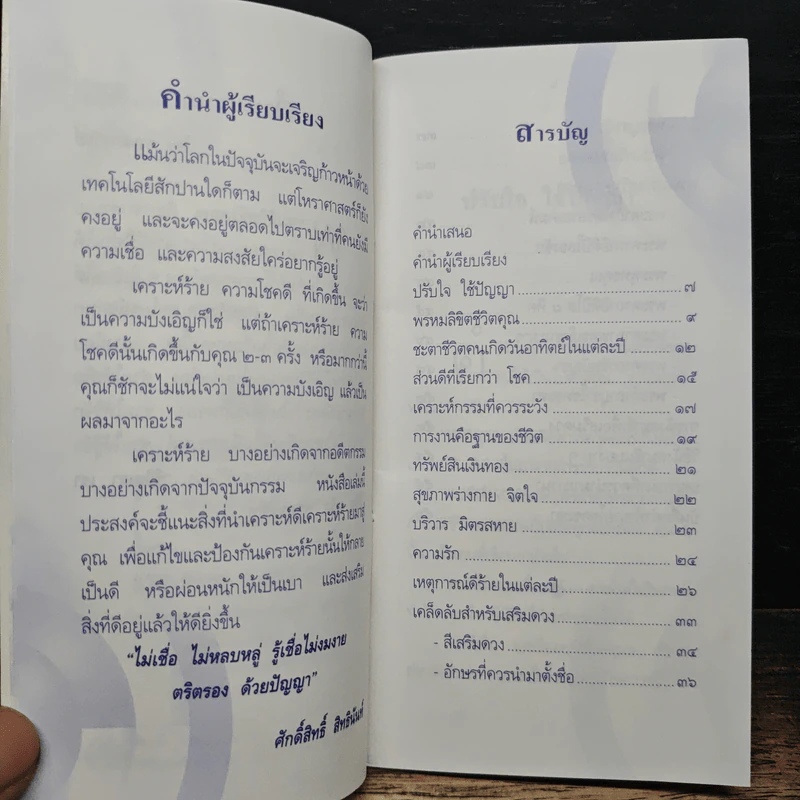 คำนำผู้เรียบเรียง
แม้นว่าโลกในปัจจุบันจะเจริญก้าวหน้าด้วย
เทคโนโลยีสักปานใดก็ตาม แต่โหราศาสตร์ก็ยัง
คงอยู่ และจะคงอยู่ตลอดไปตราบเท่าที่คนยังมี
ความเชื่อ และความสงสัยใคร่อยากรู้อยู่
เคราะห์ร้าย ความโชคดี ที่เกิดขึ้น จะว่า
เป็นความบังเอิญก็ใช่ แต่ถ้าเคราะห์ร้าย ความ
โชคดีนั้นเกิดขึ้นกับคุณ ๒-๓ ครั้ง หรือมากกว่านี้
คุณก็ชักจะไม่แน่ใจว่า เป็นความบังเอิญ แล้วเป็น
ผลมาจากอะไร
เคราะห์ร้าย บางอย่างเกิดจากอดีตกรรม
บางอย่างเกิดจากปัจจุบันกรรม หนังสือเล่มนี้
ประสงค์จะชี้แนะสิ่งที่นำเคราะห์ดีเคราะห์ร้ายมาสู่
คุณ เพื่อแก้ไขและป้องกันเคราะห์ร้ายนั้นให้กลาย
เป็นดี หรือผ่อนหนักให้เป็นเบา และส่งเสริม
สิ่งที่ดีอยู่แล้วให้ดียิ่งขึ้น
"ไม่เชื่อ ไม่หลบหลู่ รู้เชื่อไม่งมงาย
ตริตรอง ด้วยปัญญา"
ศักดิ์สิทธิ์ สิทธินันท์
สารบัญ
คำนำเสนอ
คำนำผู้เรียบเรียง
ปรับใจ ใช้ปัญญา ๗
พรหมลิขิตชีวิตคุณ ๙
ชะตาชีวิตคนเกิดวันอาทิตย์ในแต่ละปี ๑๒
ส่วนดีที่เรียกว่า โชค ๑๕
เคราะห์กรรมที่ควรระวัง ๑๗
การงานคือฐานของชีวิต ๑๙
ทรัพย์สินเงินทอง ๒๑
สุขภาพร่างกาย จิตใจ ๒๒
บริวาร มิตรสหาย ๒๓
ความรัก ๒๔
เหตุการณ์ดีร้ายในแต่ละปี ๒๖
เคล็ดลับสำหรับเสริมดวง ๓๓
- สีเสริมดวง ๓๔
- อักษรที่ควรนำมาตั้งชื่อ ๓๖